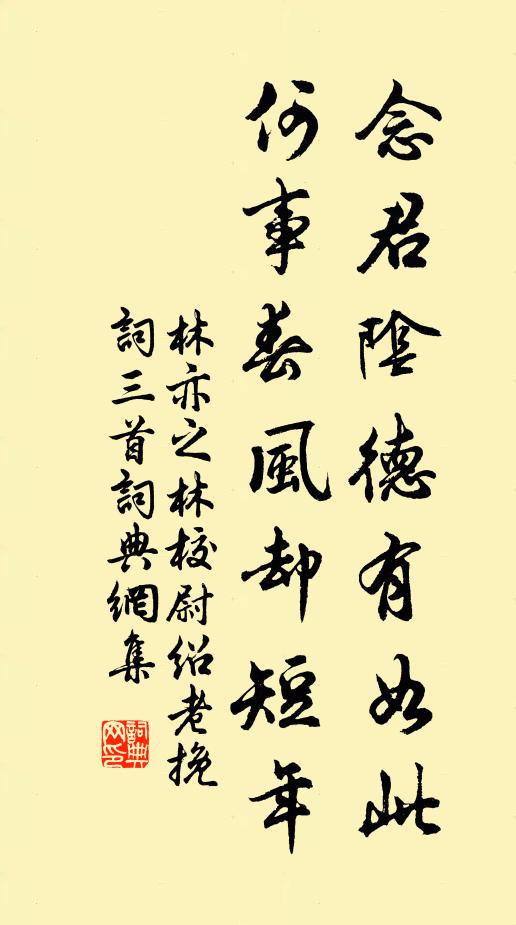 念君陰德有如此
何事春風却短年
林亦之林校尉紹老挽
詞三首詞典網集
詞典網印